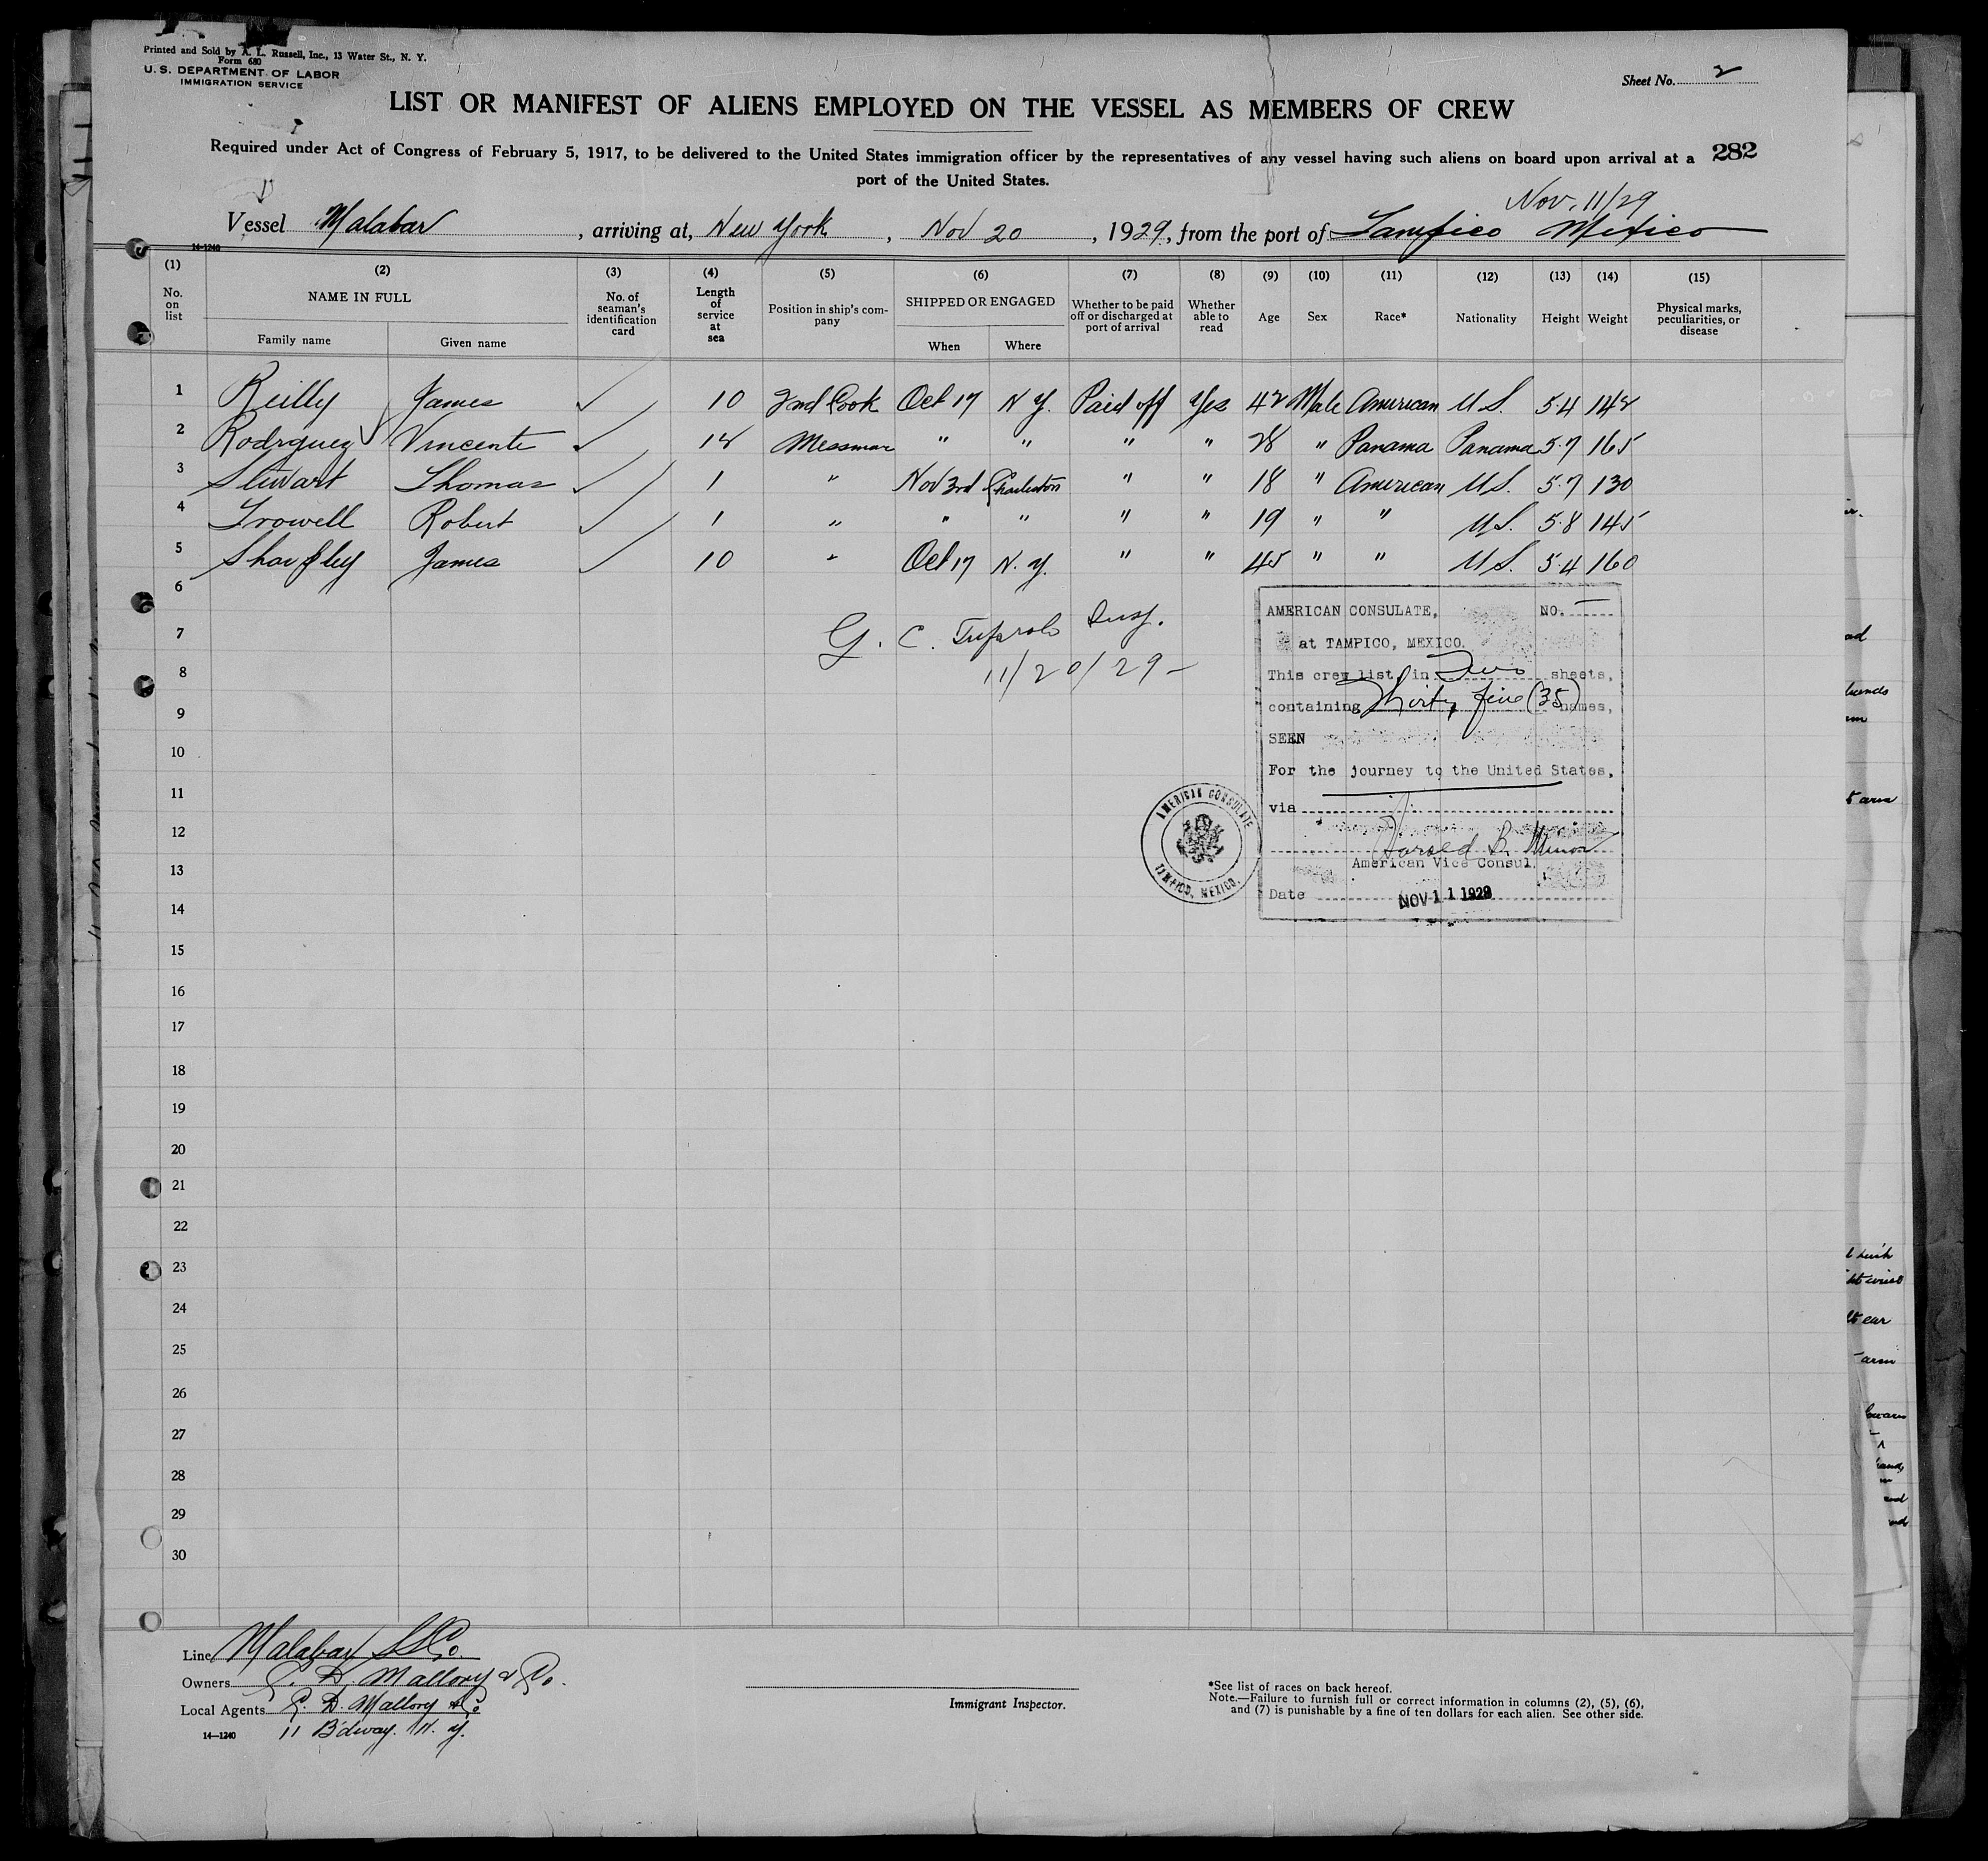 Printed and Sold by A. L. Russell, Inc., 13 Water St., N. Y.
Form 680
U. S. DEPARTMENT OF LABOR
IMMIGRATION SERVICE
Sheet No. 2
LIST OR MANIFEST OF ALIENS EMPLOYED ON THE VESSEL AS MEMBERS OF CREW
Required under Act of Congress of February 5, 1917, to be delivered to the United States immigration officer by the representatives of any vessel having such aliens on board upon arrival at a 282
port of the United States.
Nov. 11/29
Vessel Malabar, arriving at, New York, Nov 20, 1929, from the port of Tampico Mexico
14-1240
(1) (2) (3) (4) (5) (6) (7) (8) (9) (10) (11) (12) (13) (14) (15)
No. on list NAME IN FULL No. of seaman's identification card Length of service at sea Position in ship's company SHIPPED OR ENGAGED Whether to be paid off or discharged at port of arrival Whether able to read Age Sex Race* Nationality Height Weight Physical marks, peculiarities, or disease
Family name Given name When Where
1 Reilly James ✓ 10 2nd Cook Oct 17 N Y. Paid off Yes 42 Male American U S. 5.4 142
2 Rodrguez Vincente ✓ 12 Messman " " " " 28 " Panama Panama 5.7 165
3 Stewart Thomas ✓ 1 " Nov 3rd Charleston " " 18 " American U S. 5.7 130
4 Trowell Robert ✓ 1 " " " " " 19 " " U S. 5.8 145
5 James ✓ 10 " Oct 17 N. Y. " " 45 " " U S. 5.4 160
6
7
8
9
10
11
12
13
14
15
16
17
18
19
20
21
22
23
24
25
26
27
28
29
30
G. C. Insp.
11/20/29
AMERICAN CONSULATE, NO. —
at TAMPICO, MEXICO.
This crew list, in Two sheets,
containing Thirty five (35) names,
SEEN
For the journey to the United States,
via
Harold B. Minor
American Vice Consul.
Date NOV 11 1929
AMERICAN CONSULATE
TAMPICO, MEXICO.
Line Malabar S S Co.
Owners C. D. Mallory & Co.
Local Agents C. D. Mallory & Co
14—1240 11 B'dway. N. Y.
Immigrant Inspector.
*See list of races on back hereof.
Note.—Failure to furnish full or correct information in columns (2), (5), (6),
and (7) is punishable by a fine of ten dollars for each alien. See other side.